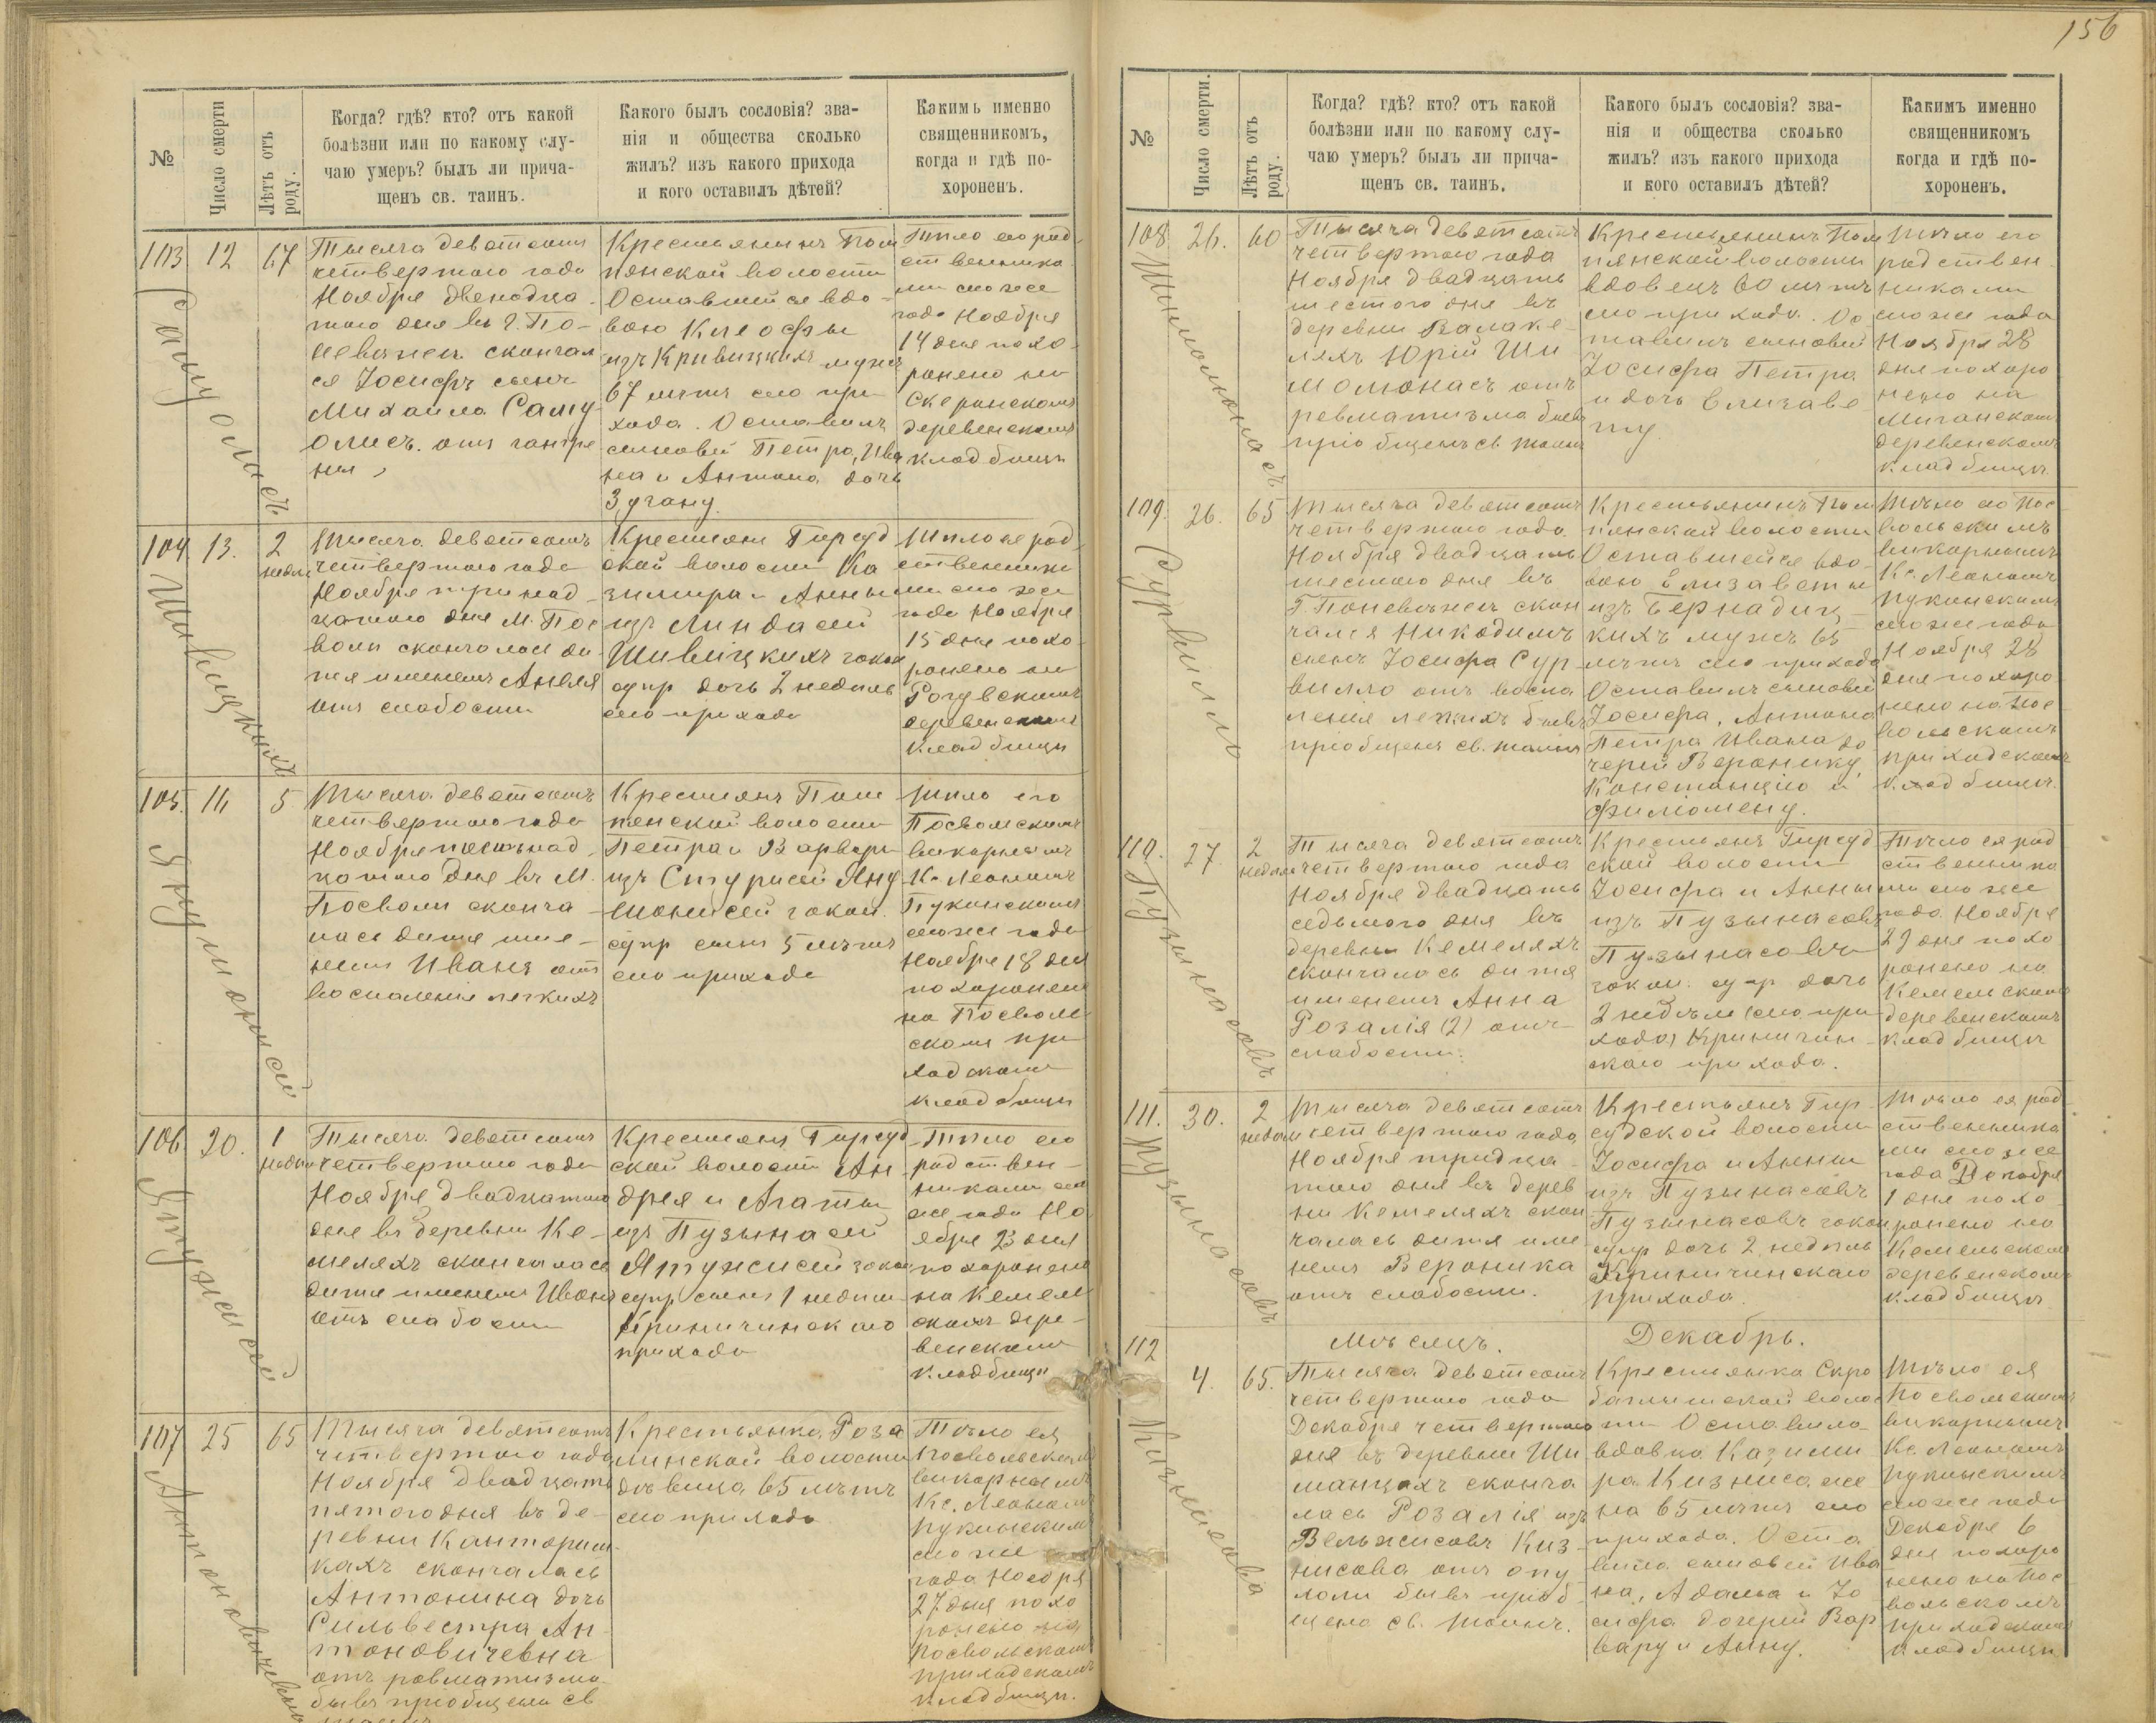 156
№
Число смерти
Лѣтъ отъ роду.
Когда? гдѣ? кто? отъ какой
болѣзни или по какому слу-
чаю умеръ? былъ ли прича-
щенъ св. таинъ.
Какого былъ сословія? зва-
нія и общества сколько
жилъ? изъ какого прихода
и кого оставилъ дѣтей?
Какимъ именно
священникомъ,
когда и гдѣ по-
хороненъ.
103 12 67
Самуолисъ.
Тысяча девятсотъ
четвертого года
Ноября двенадца-
таго дня въ г. По-
невѣжѣ скончал
ся Іосифъ сынъ
Михаила Саму-
олисъ. отъ гангре
ны,
Крестьянинъ Пом
пянской волости
Оставшейся вдо-
вою Клеофы
изъ Кривицкихъ мужъ
67 лѣтъ сего при-
хода. Оставилъ
сыновей Петра, Ива
на и Антона дочь
Зузану.
Тѣло его род-
ственника
ми сего же
года Ноября
14 дня похо-
ронено на
деревенскомъ
кладбищѣ
104 13. 2 недѣли
Шивицкихъ
Тысяча девятсотъ
четвертого года
Ноября тринад-
цатого дня М. Пос
воли скончалось ди-
тя именемъ Анеля
отъ слабости
Крестьянъ Гирсуд
ской волости Ка
зимира и Анны
изъ Линдасей
Шивицкихъ закон
супр дочь 2 недѣль
сего прихода
Тѣло ея род-
ственника
ми сего же
года Ноября
15 дня похо-
ронено на
деревенскомъ
кладбищѣ
105. 16 5
Янушонисей
Тысяча девятсотъ
четвертого года
Ноября шестьнад-
цатого дня въ М.
Посволи сконча-
лась дитя име-
немъ Иванъ отъ
воспаленія легкихъ
Крестьянъ Пом
пянской волости
Петра и Варвары
изъ Стурисей Яну
шонисей закон.
супр сынъ 5 лѣтъ
сего прихода
Тѣло его
Посвольскимъ
викарнымъ
Кс. Леономъ
Пукинскимъ
сего же года
Ноября 18 дня
похоронено
на Посволь
скомъ при
ходскомъ
кладбищѣ
106 20. 1 недѣли
Ятужисей
Тысяча девятсотъ
четвертого года
Ноября двадцатого
дня въ деревни Ке-
меляхъ скончалась
дитя именемъ Иванъ
отъ слабости
Крестьянъ Гирсуд
ской волости Ан
дрея и Агаты
изъ Пузынасей
Ятужисей закон
супр сынъ 1 недѣли
Криничинскаго
прихода
Тѣло его
родствен-
никами сего
же года Но
ября 23 дня
похоронено
на Кемель
скомъ дере-
венскомъ
кладбищѣ
107 25 65
Антоновичевна
Тысяча девятсотъ
четвертого года
Ноября двадцать
пятого дня въ де-
ревни Канторим-
кахъ скончалась
Антонина дочь
Сильвестра Ан-
тоновичевна
отъ ревматизма
бывъ пріобщены св
таинъ
Крестьянка Роза
линской волости
дѣвица 65 лѣтъ
сего прихода
Тѣло ея
Посвольскимъ
викарнымъ
Кс. Леономъ
Пукинскимъ
сего же
года Ноября
27 дня похо
ронено на
Посвольскомъ
приходскомъ
кладбищѣ.
№
Число смерти.
Лѣтъ отъ роду.
Когда? гдѣ? кто? отъ какой
болѣзни или по какому слу-
чаю умеръ? былъ ли прича-
щенъ св. таинъ.
Какого былъ сословія? зва-
нія и общества сколько
жилъ? изъ какого прихода
и кого оставилъ дѣтей?
Какимъ именно
священникомъ
когда и гдѣ по-
хороненъ.
108 26. 60
Шимолюнасъ.
Тысяча девятсотъ
четвертого года
Ноября двадцать
шестого дня въ
деревни Валаке-
ляхъ Юрій Ши
молюнасъ отъ
ревматизма бывъ
пріобщенъ св. таинъ
Крестьянинъ Пом
пянской волости
вдовецъ 60 лѣтъ
сего прихода. Ос
тавилъ сыновей
Іосифа Петра
и дочь Елизаве
ту.
Тѣло его
родствен
никами
сего же года
Ноября 28
дня похоро
нено на
деревенскомъ
кладбищѣ.
109. 26. 65
Сурвилло
Тысяча девятсотъ
четвертого года
Ноября двадцать
шестого дня въ
Г. Поневѣжѣ скон
чался Никодимъ
сынъ Іосифа Сур-
вилло отъ воспа
ленія легкихъ бывъ
пріобщенъ св. таинъ
Крестьянинъ Пом
пянской волости
Оставшейся вдо-
вою Елизаветы
изъ Бернадиц-
кихъ мужъ 65
лѣтъ сего прихода
Оставилъ сыновей
Іосифа, Антона
Петра Ивана до
черей Веронику,
Констанцію и
Филомену.
Тѣло его Пос
вольскимъ
викарнымъ
Кс. Леономъ
Пукинскимъ
сего же года
Ноября 28
дня похоро
нено на Пос
вольскомъ
приходскомъ
кладбищѣ.
110. 27. 2 недѣли
Пузынасовъ
Тысяча девятсотъ
четвертого года
Ноября двадцать
седьмого дня въ
деревни Кемеляхъ
скончалось дитя
именемъ Анна
Розалія (2) отъ
слабости.
Крестьянъ Гирсуд
ской волости
Іосифа и Анны
изъ Пузынасовъ
Пузынасовъ
закон. супр дочь
2 недѣли (сего при
хода) Криничин-
скаго прихода.
Тѣло ея род
ственника
ми сего же
года Ноября
29 дня похо
ронено на
Кемельскомъ
деревенскомъ
кладбищѣ
111. 30. 2 недѣли
Пузынасовъ
Тысяча девятсотъ
четвертого года
Ноября тридца-
того дня въ дерев
ни Кемеляхъ скон
чалась дитя име
немъ Вероника
отъ слабости.
Крестьянъ Гир-
судской волости
Іосифа и Анны
изъ Пузынасовъ
Пузынасовъ закон
супр дочь 2 недѣль
Криничинскаго
прихода.
Тѣло ея род
ственника
ми сего же
года Декабря
1 дня похо
ронено на
Кемельскомъ
деревенскомъ
кладбищѣ
Мѣсяцъ. Декабрь.
112 4. 65.
Кизнисова
Тысяча девятсотъ
четвертого года
Декабря четвертого
дня въ деревни Ши
манцахъ сконча
лась Розалія изъ
Вельжисовъ Киз-
нисова отъ опу
холи бывъ пріоб-
щена св. Таинъ.
Крестьянка Скро
ботишской волос
ти Оставила
вдовца Казими
ра Кизниса же
на 65 лѣтъ сего
прихода. Оста
вила сыновей Ива
на, Адама и Іо
сифа дочерей Вар
вару и Анну.
Тѣло ея
Посвольскимъ
викарнымъ
Кс. Леономъ
Пукинскимъ
сего же года
Декабря 6
дня похоро
нено на Пос
вольскомъ
приходскомъ
кладбищѣ